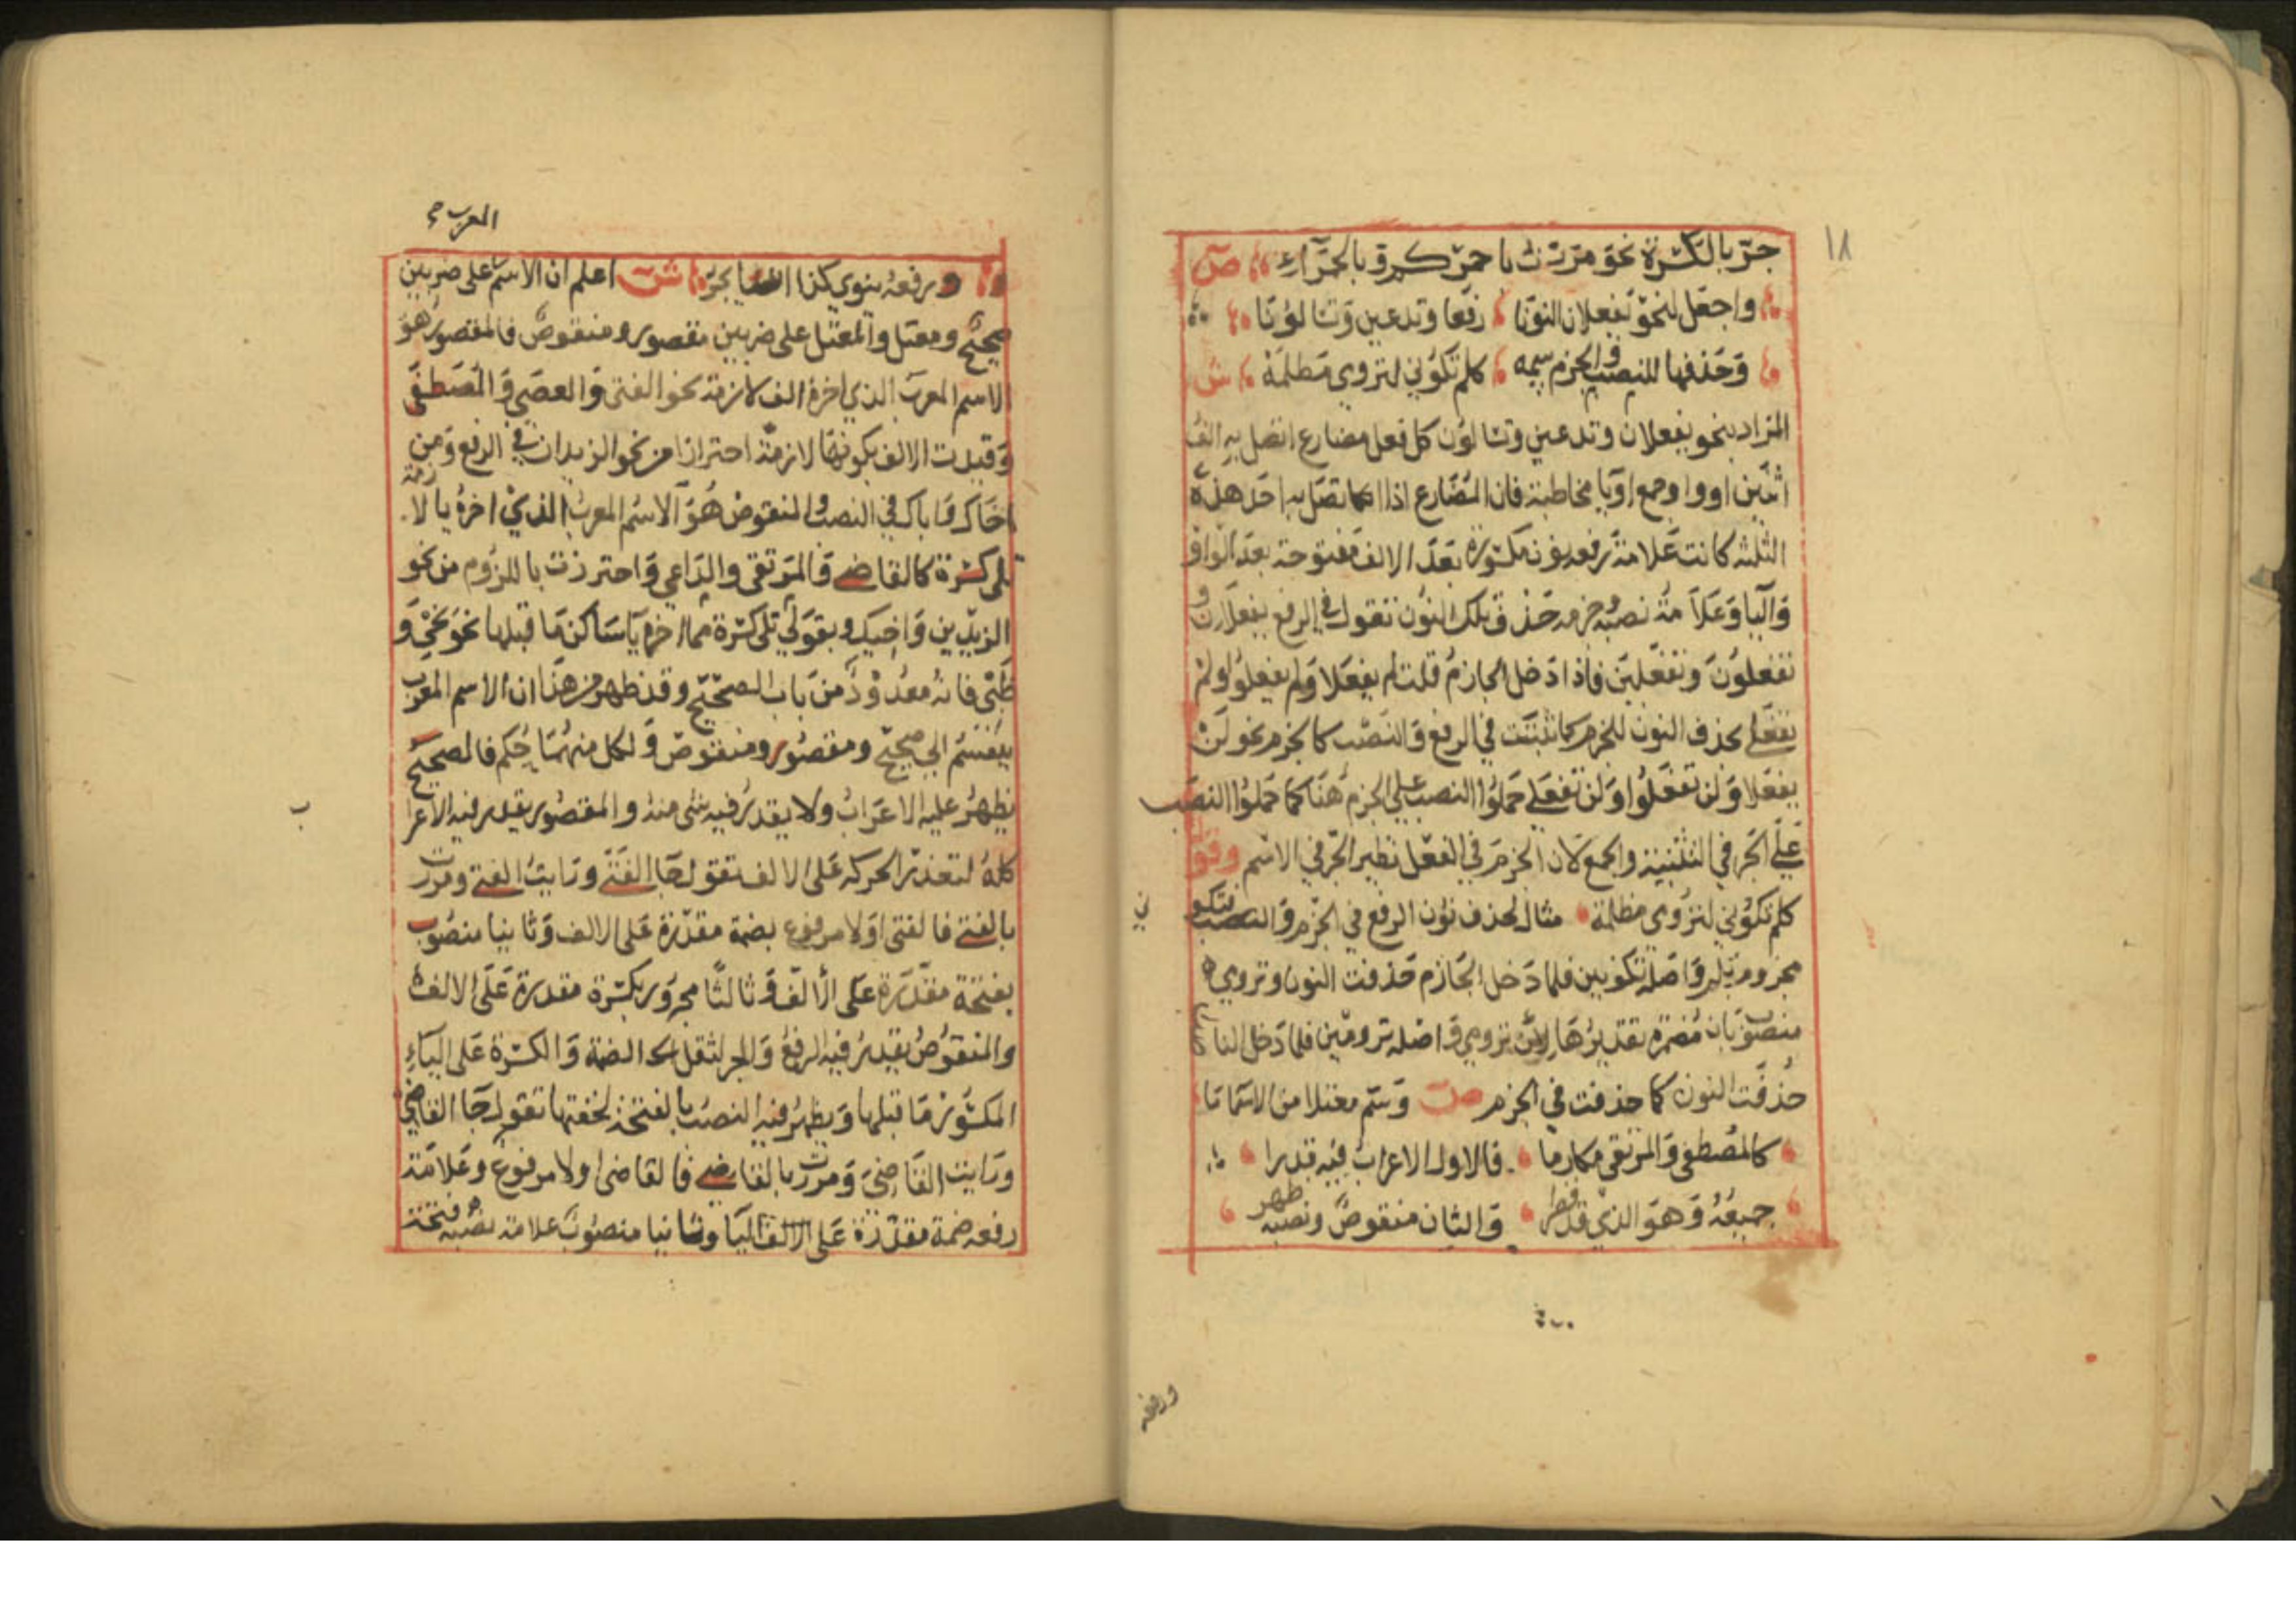 ١٨
جرّ بالكسرة نحو مررت باحمركم وبالحمراء ص
واجعل لنحو تفعلان النونا رفعا وتدعين وتسالونا
وحذفها للنصب والجزم سمه كلم تكوني لترومي مظلمة ش
المراد بنحو يفعلان وتدعين وتسالون كل فعل مضارع اتصل به الف
اثنين او واو جمع او يا مخاطبة فان المضارع اذا اتصل به احد هذه
الثلثه كانت علامة رفعه نون مكسورة بعد الالف مفتوحة بعد الواو
واليا وعلامة نصبه وجزمه حذف تلك النون تقول في الرفع يفعلان و
تفعلون وتفعلين فاذا دخل الجازم قلت لم يفعلا ولم يفعلوا ولم
تفعلي بحذف النون للجزم كما ثبتت في الرفع والنصب كالجزم نحو لن
يفعلا ولن تفعلوا ولن تفعلي حملوا النصب على الجزم هنا كما حملوا النصب
على الجر في التثنية والجمع لان الجزم في الفعل نظير الجر في الاسم وقوله
كلم تكوني لترومي مظلمة مثال لحذف نون الرفع في الجزم والنصب فتكو
ني
مجزوم بلم واصله تكونين فلما دخل الجازم حذفت النون وترومي
منصوب بان مضمرة تقديرها لان ترومي واصله ترومين فلما دخل الناصب
حذفت النون كما حذفت في الجزم ص وسم معتلا من الاسما ما
كالمصطفى والمرتقي مكارما فالاول الاعراب فيه قدرا
جميعه وهو الذي قد قصرا والثان منقوص ونصبه ظهر
ورفعه
المعرب
ورفعه ينوى كذا ايضا يجرّ ش اعلم ان الاسم على ضربين
صحيح ومعتل والمعتل على ضربين مقصور ومنقوص فالمقصور هو
الاسم المعرب الذي اخره الف لازمة نحو الفتى والعصى والمصطفى
وقيدت الالف بكونها لازمة احترازا من نحو الزيدان في الرفع ومن
اخاك واباك في النصب والمنقوص هو الاسم المعرب الذي اخره يا لازمة
تلي كسرة كالقاضي والمرتقي والداعي واحترزت باللزوم من نحو
الزيدين واخيك وبقولي تلي كسرة مما اخره يا ساكن ما قبلها نحو نحي و
ظبي فانه معدود من باب الصحيح وقد ظهر من هذا ان الاسم المعرب
ينقسم الى صحيح ومقصور ومنقوص ولكل منهما حكم فالصحيح
يظهر عليه الاعراب ولا يقدر فيه شى منه والمقصور يقدر فيه الاعرا
ب
كله لتعذر الحركه على الالف تقول جا الفتى ورايت الفتى ومررت
بالفتى فالفتى اولا مرفوع بضمة مقدرة على الالف وثانيا منصوب
بفتحة مقدرة على الالف وثالثا مجرور بكسرة مقدرة على الالف
والمنقوص يقدر فيه الرفع والجر لثقل الضمة والكسرة على الياء
المكسور ما قبلها ويظهر فيه النصب بالفتحة لخفتها تقول جا القاضي
ورايت القاضي ومررت بالقاضي فالقاضي اولا مرفوع وعلامة
رفعه ضمة مقدرة على اليا وثانيا منصوب علامة نصبه فتحة